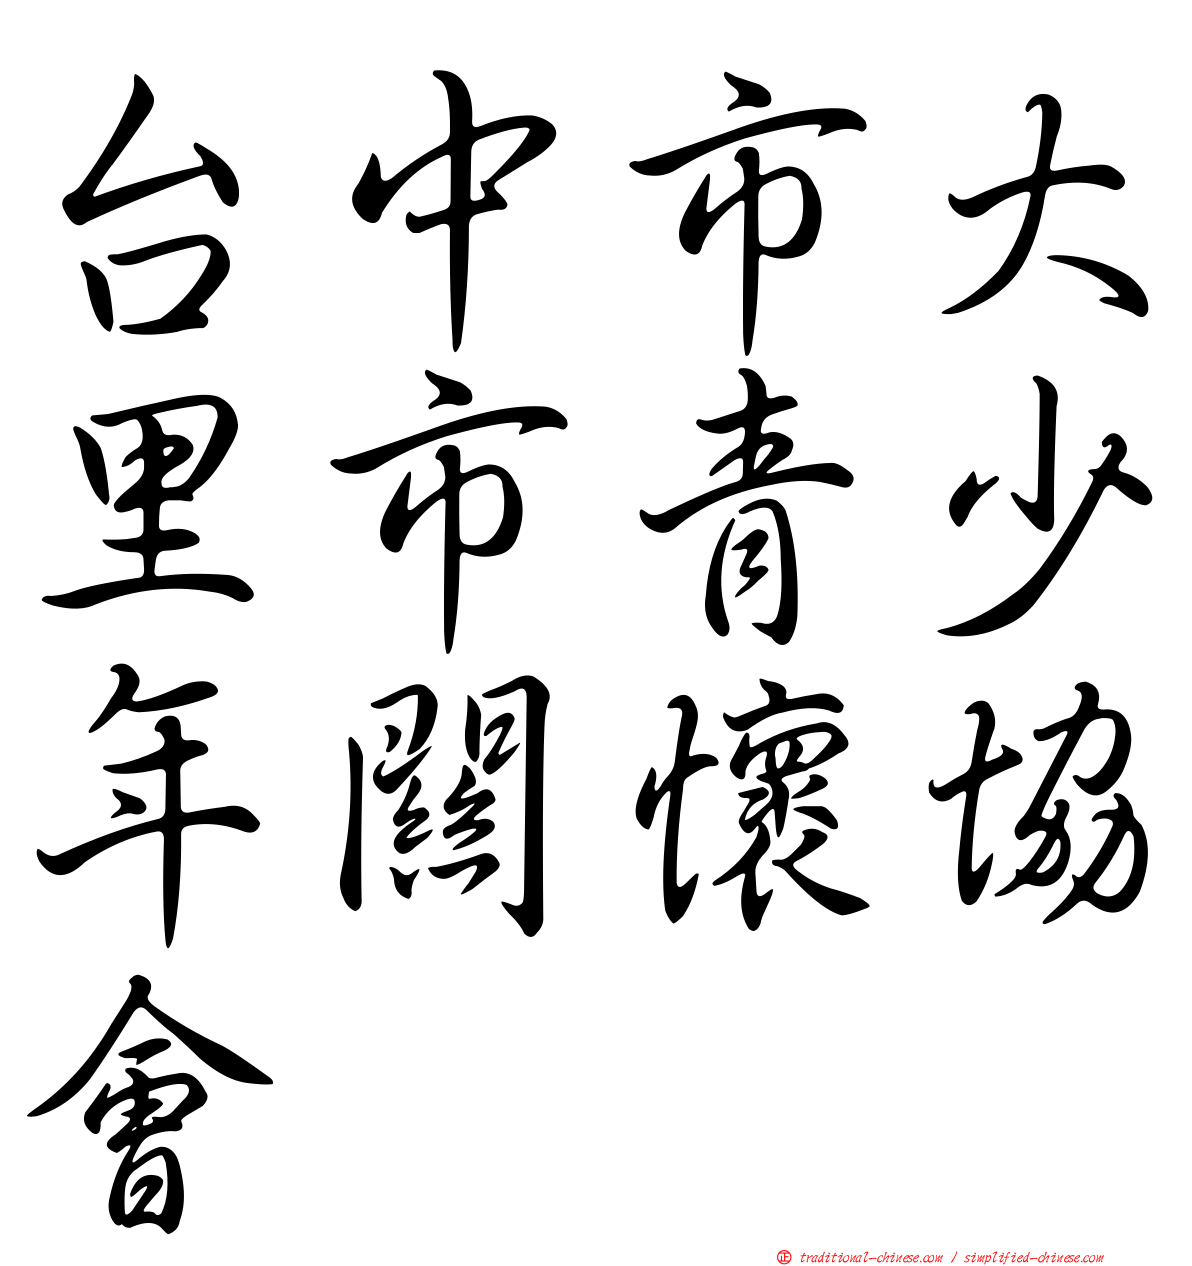 台中市大
里市青少
年關懷協
會
正 traditional-chinese.com / simplified-chinese.com